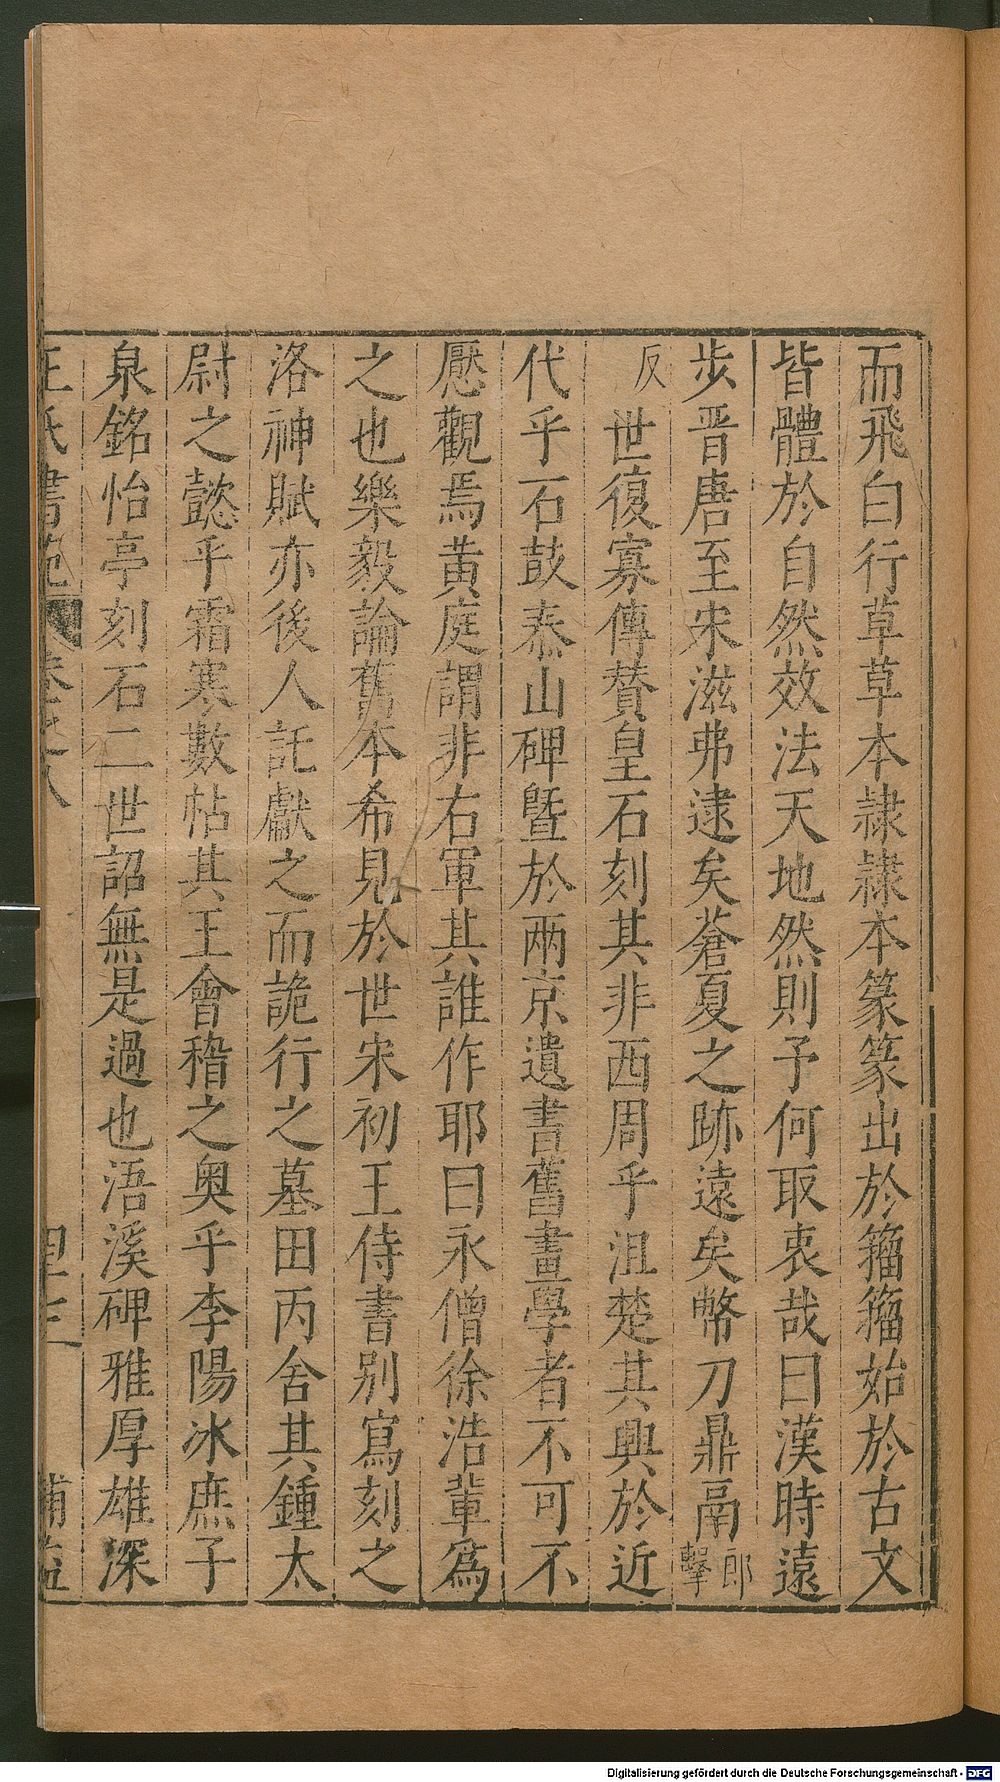 而飛白行草草本隷隷本篆篆出於籀籀始於古文
皆體於自然效法天地然則予何取衷哉曰漢時遠
步晋唐至宋滋弗逮矣蒼夏之跡遠矣幣刀鼎鬲郎擊
反世復寡傳贊皇石刻其非西周乎沮楚其興於近
代乎石鼓泰山碑曁於兩京遺書舊畫學者不可不
壓觀焉黄庭謂非右軍其誰作耶曰永僧徐浩輩爲
之也樂毅論舊本希見於世宋初王侍書别寫刻之
洛神賦亦後人託獻之而詭行之墓田丙舍其鍾太
尉之懿乎霜寒數帖其王會稽之奥乎李陽冰庶子
泉銘怡亭刻石二世詔無是過也浯溪碑雅厚雄深
王氏書苑 卷之八
補益
Digitalisierung gefördert durch die Deutsche Forschungsgemeinschaft - DFG